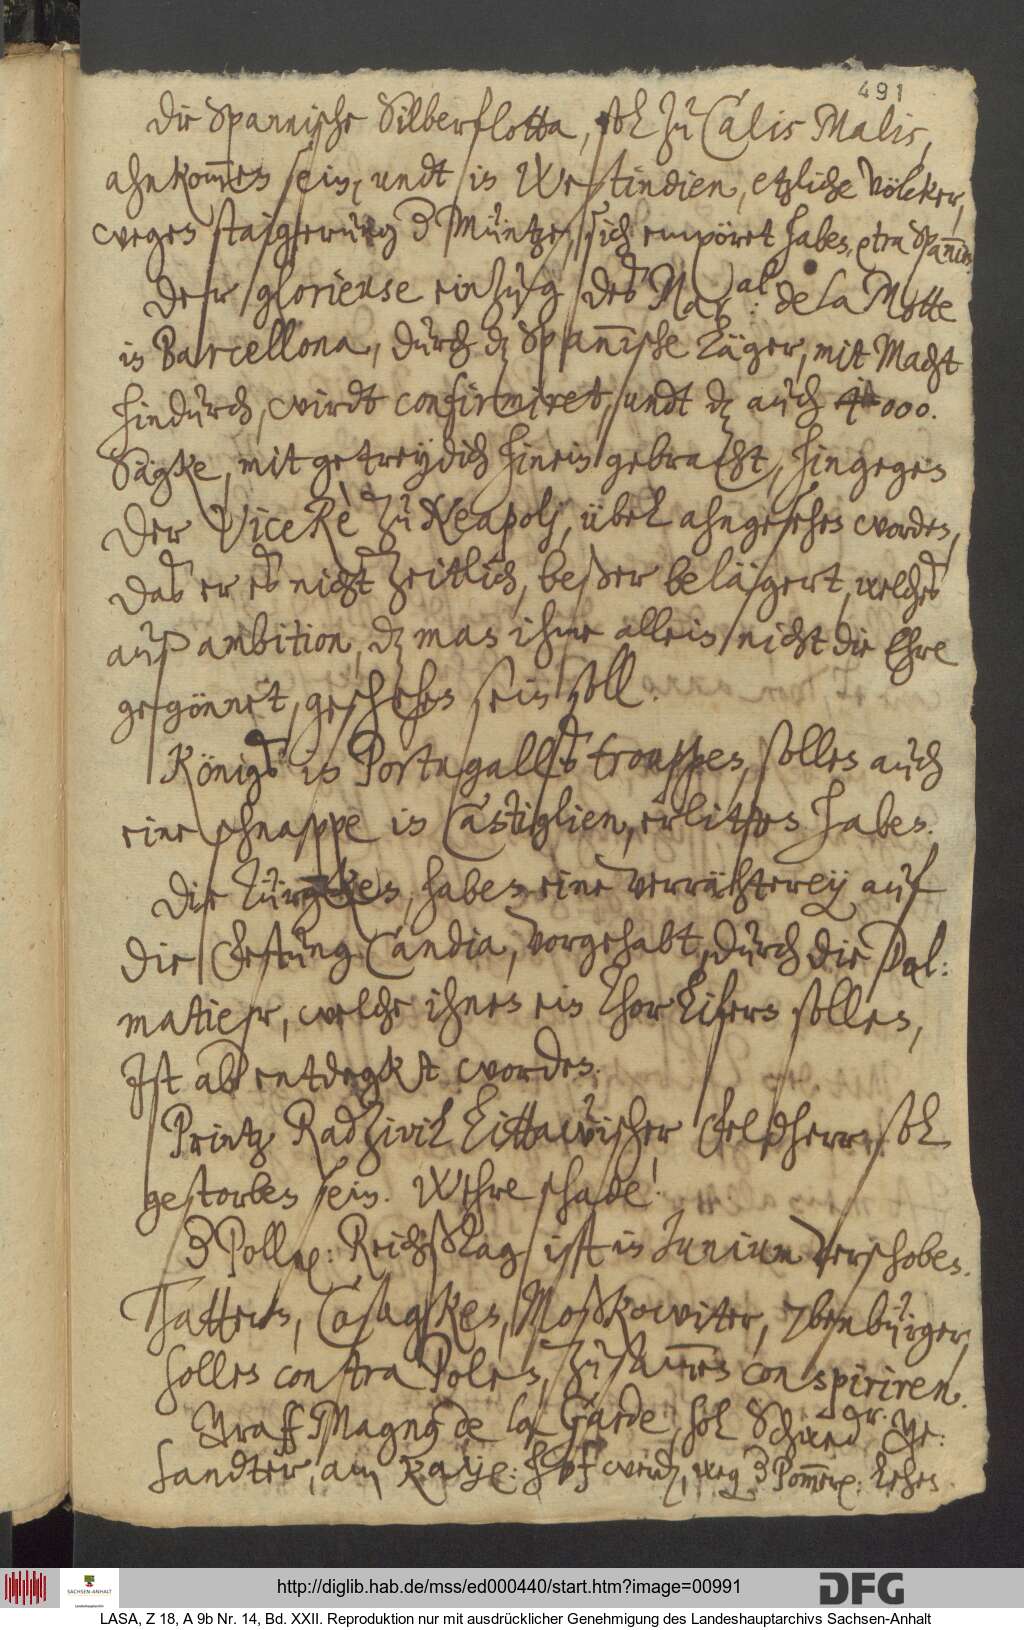 491
Die Spannische Silberflotta, sol zu Calis Malis,
ahnkom̄en sein, undt in Westindien, etzliche Völcker,
wegen staigerung d Müntze, sich empöret haben, contra Span̄ien
Der glorieuse einzug des Maral: de la Motte
in Barcellona, durch dz Span̄ische Läger, mit Macht
hindurch, wirdt confirmiret, undt dz auch 4000.
Säcke, mit getreydich hinein gebracht, hingegen
der Vice Rè zu Neapolj, übel ahngesehen worden,
das er es nicht zeitlich, beßer belägert, welches
auß ambition, dz man ihme allein nicht die Ehre
gegönnet, geschehen sein soll.
Königs in Portugalls trouppen, sollen auch
eine schnappe in Castiglien, erlitten haben.
Die Türgken, haben eine verrähterey auf
die Festung Candia, vorgehabt, durch die Dal:
matier, welche ihnen ein Thor liefern sollen,
Ist aber entdegkt worden.
Printz Radzivil Littawischer Feldherr, sol
gestorben sein. Wehre schade!
d Polln: Reichßtag ist in Junium verschoben.
Tattern, Cosagken, Moßkowiter, Sbenbürger,
sollen contra Polen, zusam̄en conspiriren.
Graff Magnus de la Garde, sol Schwed: Ge:
sandter, am Kayl: hof werden, weg d Pom̄erl: Lehen
http://diglib.hab.de/mss/ed000440/start.htm?image=00991
DFG
SACHSEN-ANHALT
LASA, Z 18, A 9b Nr. 14, Bd. XXII. Reproduktion nur mit ausdrücklicher Genehmigung des Landeshauptarchivs Sachsen-Anhalt